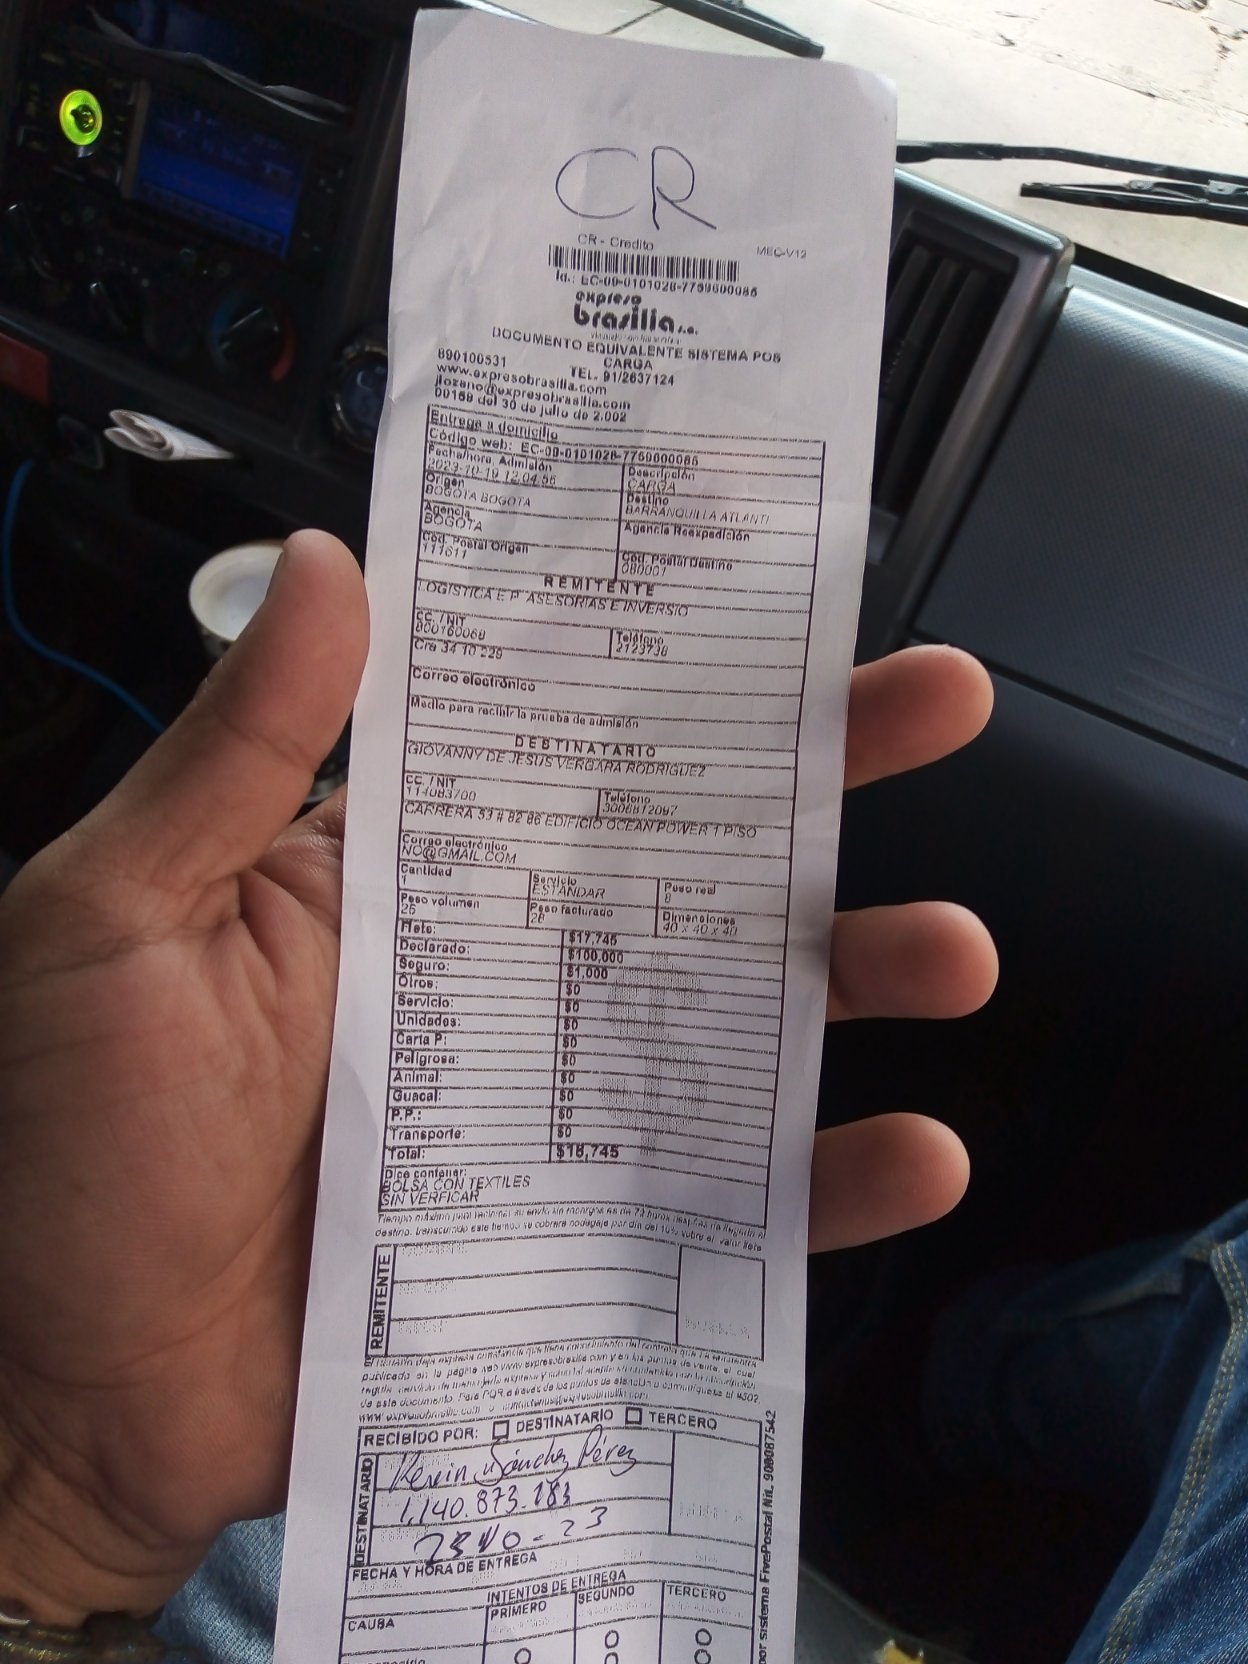 CR
CR - Credito
MEC-V12
Id.: EC-09-0101028-7759600085
expreso
brasilia s.a.
DOCUMENTO EQUIVALENTE SISTEMA POS
CARGA
890100531
TEL. 91/2637124
www.expresobrasilia.com
jlozano@expresobrasilia.com
00159 del 30 de julio de 2.002
Entrega a domicilio
Código web: EC-09-0101028-7759600085
Fecha/hora. Admisión
2023-10-19 12:04:56
Descripción
CARGA
Origen
BOGOTA BOGOTA
Destino
BARRANQUILLA ATLANTI
Agencia
BOGOTA
Agencia Reexpedición
Cód. Postal Origen
111611
Cód. Postal Destino
080001
REMITENTE
LOGISTICA E.P. ASESORIAS E INVERSIO
CC. / NIT
800160068
Teléfono
2123738
Cra 34 10 229
Correo electrónico
Medio para recibir la prueba de admisión
DESTINATARIO
GIOVANNY DE JESUS VERGARA RODRIGUEZ
CC. / NIT
114083700
Teléfono
3006812097
CARRERA 53 # 82 86 EDIFICIO OCEAN POWER 1 PISO
Correo electrónico
NO@GMAIL.COM
Cantidad
1
Servicio
ESTANDAR
Peso real
8
Peso volumen
26
Peso facturado
26
Dimensiones
40 x 40 x 40
Flete: $17,745
Declarado: $100,000
Seguro: $1,000
Otros: $0
Servicio: $0
Unidades: $0
Carta P: $0
Peligrosa: $0
Animal: $0
Guacal: $0
P.P.: $0
Transporte: $0
Total: $18,745
Dice contener:
BOLSA CON TEXTILES
SIN VERFICAR
Tiempo máximo para reclamar su envío sin recargos es de 72 horas después de llegado al
destino, transcurrido este tiempo se cobrará bodegaje por día del 10% sobre el valor flete
REMITENTE
publicado en la página web www.expresobrasilia.com y en los puntos de venta, el cual
de este documento. Para PQR a través de los puntos de atención o comuníquese al #502
www.expresobrasilia.com o
RECIBIDO POR: DESTINATARIO TERCERO
DESTINATARIO
Kevin Sánchez Pérez
1.140.873.183
23 10 - 23
FECHA Y HORA DE ENTREGA
INTENTOS DE ENTREGA
CAUSA
PRIMERO
SEGUNDO
TERCERO
por sistema FivePostal Nit. 900087542